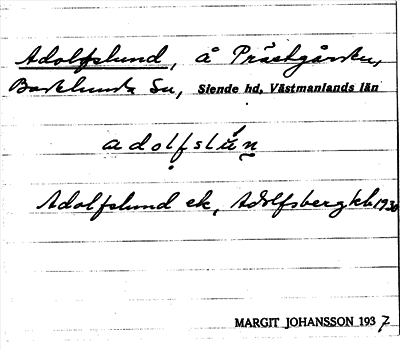 Adolfslund, å Prästgården,
Barkarö Sn, Siende hd, Västmanlands län
adolfslún
Adolfslund ek, Adolfsberg kb 1930
MARGIT JOHANSSON 1937